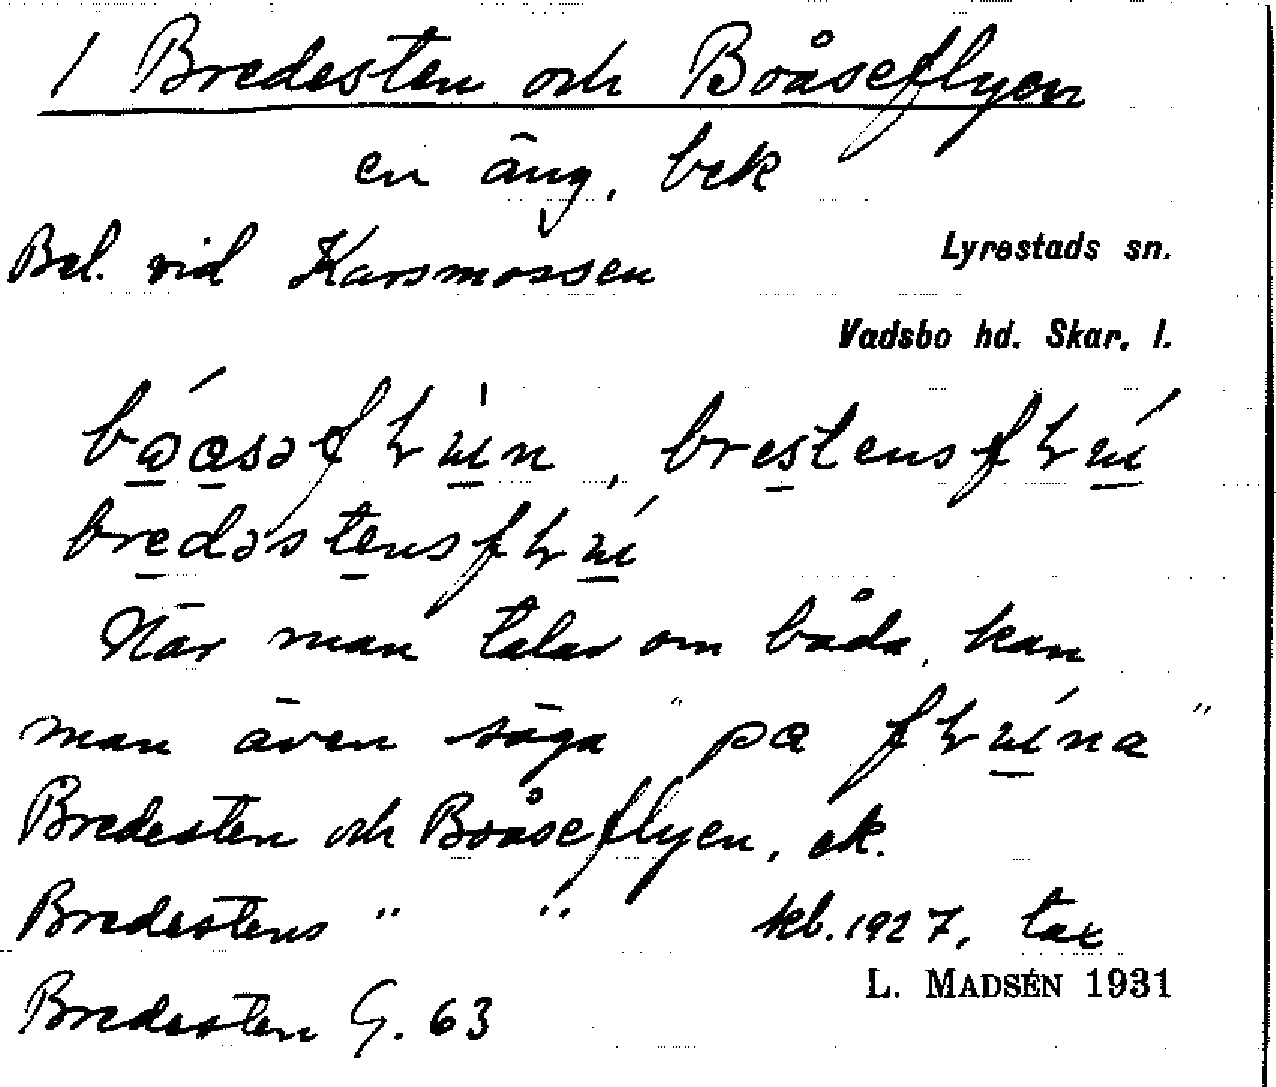 1 Bredesten och Boåseflyen
en äng, bek
Bel. vid Karsmossen
Lyrestads sn.
Vadsbo hd. Skar. l.
När man talar om båda, kan
man även säga "pa
Bredesten och Boåseflyen, ek.
Bredestens " " kb. 1927, tax
L. MADSÉN 1931
Bredesten G. 63